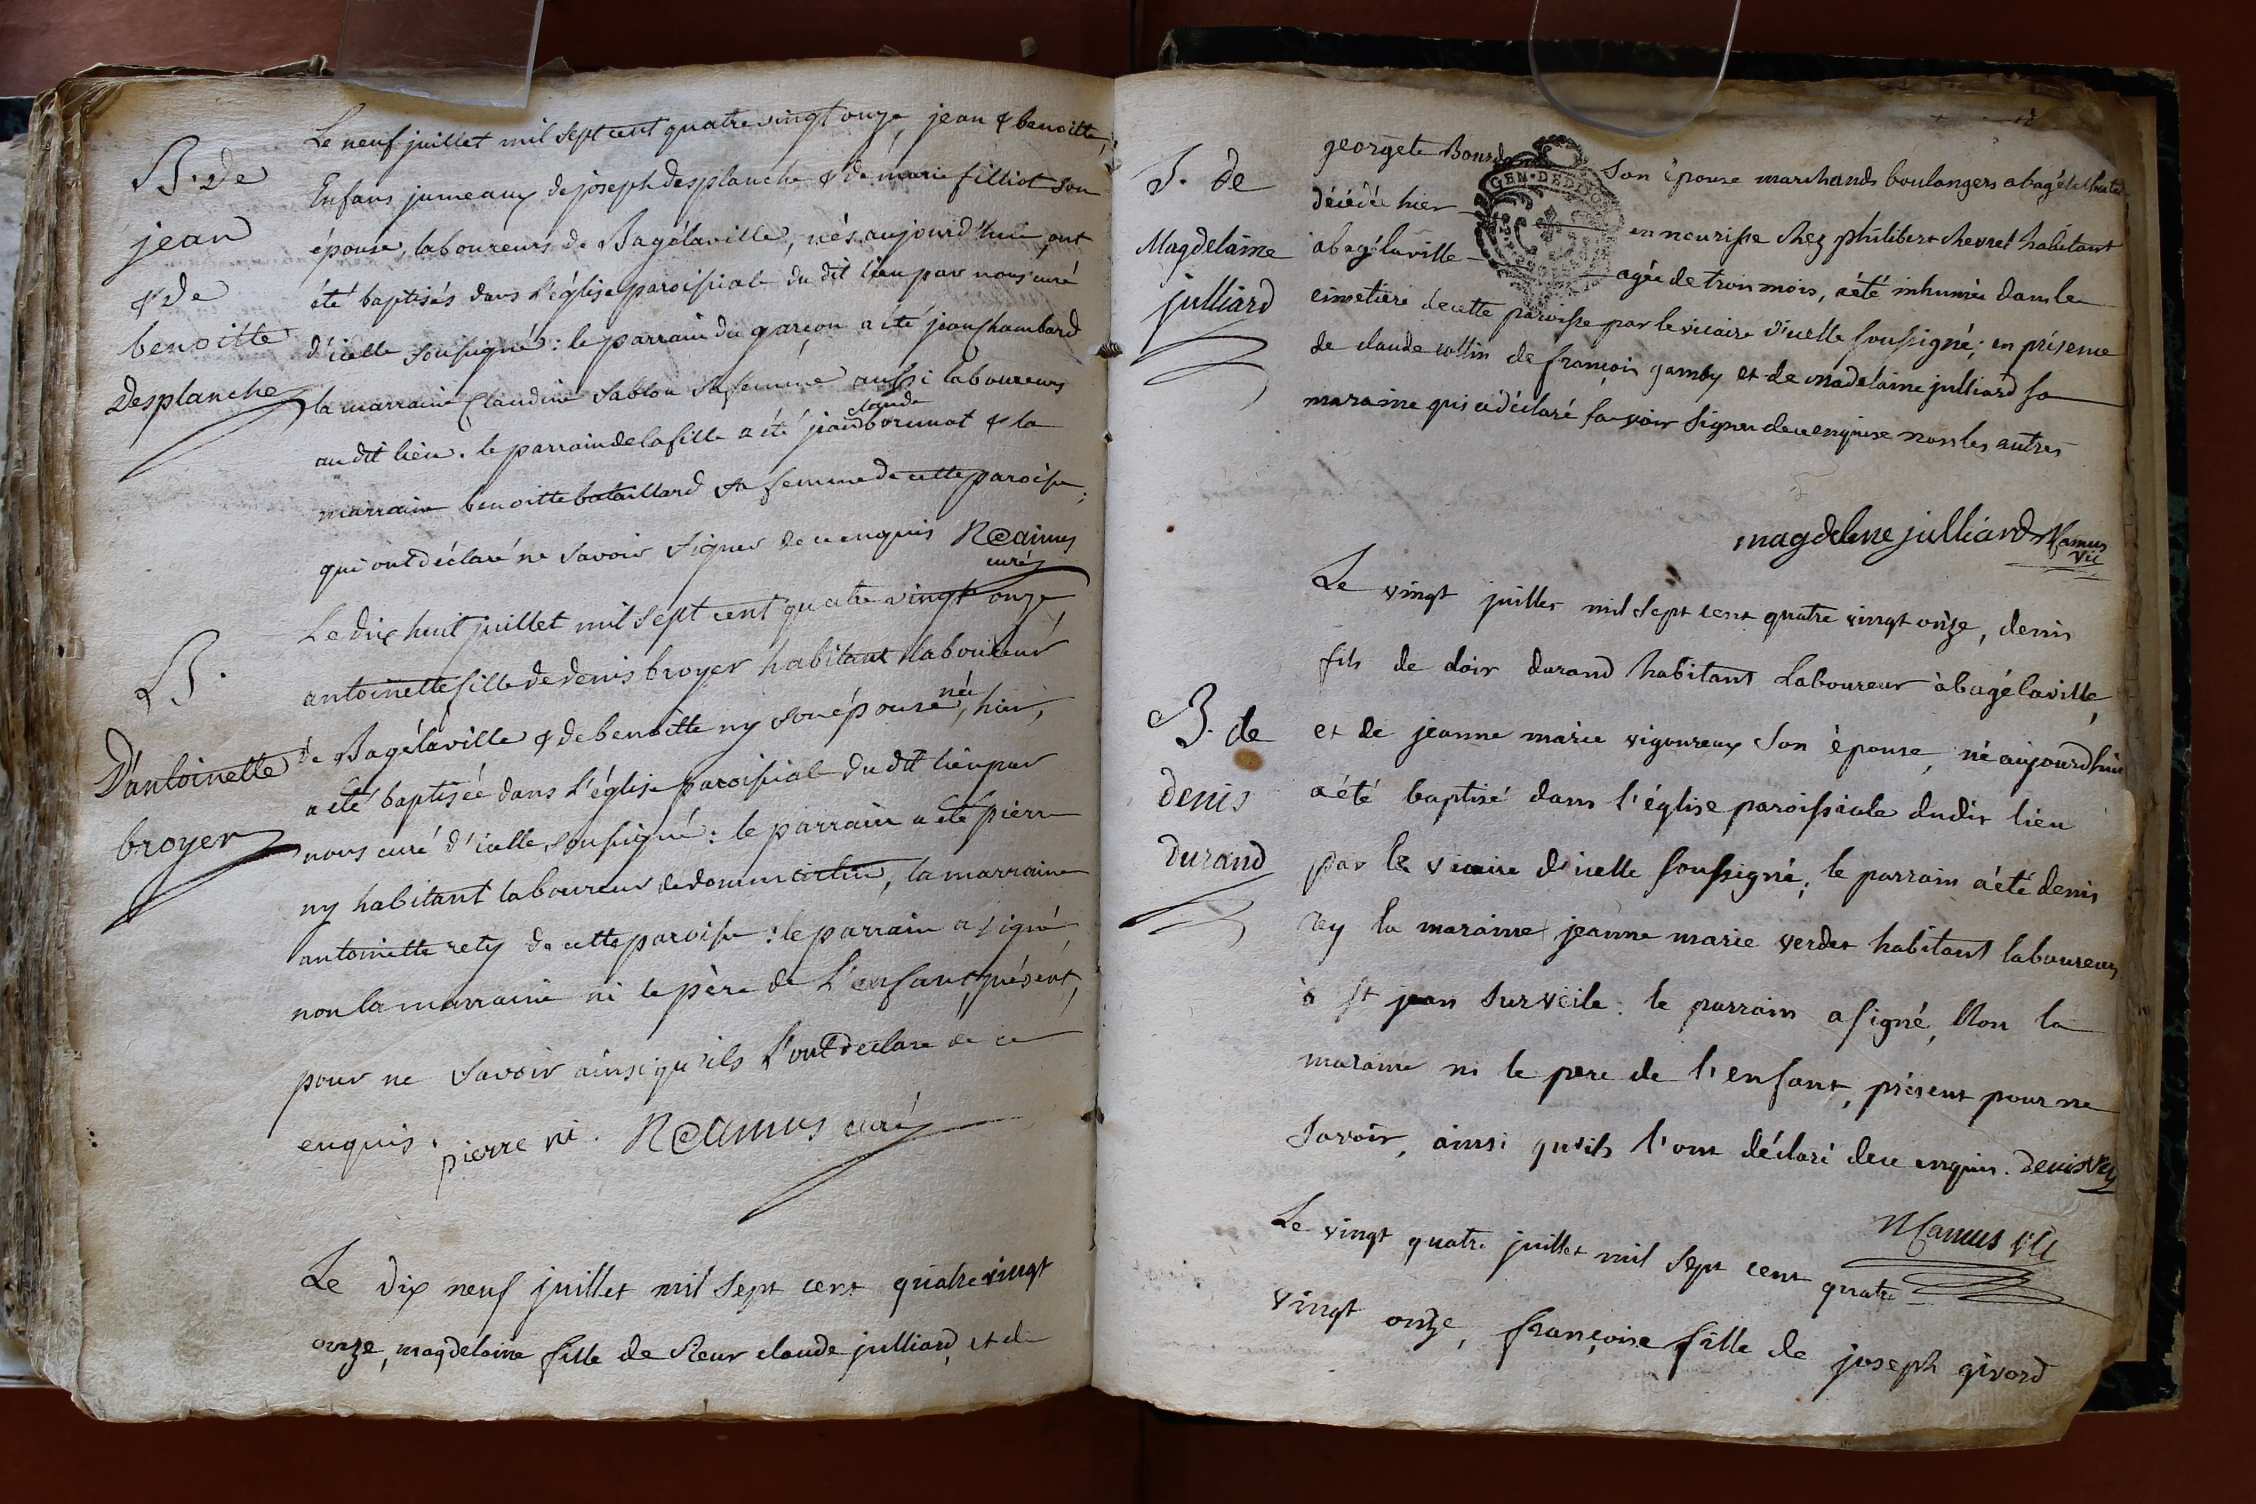 B. de
jean
& de
benoitte
Desplanche
Le neuf juillet mil sept cent quatre vingt onze, jean & benoitte,
Enfans jumeaux de joseph desplanche & de marie filliot son
épouse, laboureurs de Bagélaville, nés aujourd'hui, ont
été baptisés dans l'église paroissiale du dit lieu par nous curé
d'icelle soussigné: le parrain du garçon a été jean Chambard
la marraine Claudine Sablon sa femme aussi laboureurs
au dit lieu. le parrain de la fille a été claude bormat & la
marraine benoitte bataillard sa femme de cette paroisse;
qui ont déclaré ne savoir signer de ce enquis NCamus
curé
B.
D'antoinette
broyer
Le dix huit juillet mil sept cent quatre vingt onze
antoinette fille de denis broyer habitant laboureur
de Bagélaville & de benoitte ny son épouse, née hier,
a été baptisée dans l'église paroissiale du dit lieu par
nous curé d'icelle, soussigné: le parrain a été pierre
ny habitant laboureur de dommartin, la marraine
antoinette rety de cette paroisse: le parrain a signé
non la marraine ni le père de l'enfant, présent,
pour ne savoir ainsi qu'ils l'ont déclaré de ce
enquis. pierre ni. NCamus curé
Le dix neuf juillet mil sept cent quatre vingt
onze, magdelaine fille de Sieur claude julliard, et de
S. de
Magdelaine
julliard
georgete Son épouse marchands boulangers a bagé le chatel
GEN·DE DIJON
décédée hier en nourisse chez philibert chevret habitant
a bagélaville agée de trois mois, a été inhumée dans le
cimetiere de cette paroisse par le vicaire d'icelle soussigné; en présence
de claude collin de françois gamby et de madelaine julliard sa
maraine qui a déclaré savoir signer de ce enquise non les autres
magdelene julliard NCamus
vic
B. de
denis
durand
Le vingt juillet mil sept cent quatre vingt onze, denis
fils de durand habitant Laboureur à bagélaville,
et de jeanne marie vigoureux son épouse, né aujourd'hui
a été baptisé dans l'église paroissiale dudit lieu
par le vicaire d'icelle soussigné; le parrain a été denis
rey la maraine jeanne marie verdet habitant laboureurs
à st jean sur veile: le parrain a signé, Non la
maraine ni le pere de l'enfant, présent pour ne
savoir, ainsi qu'ils l'ont déclaré de ce enquis. denis rey
NCamus vic
Le vingt quatre juillet mil sept cent quatre
vingt onze, françoise fille de joseph givord